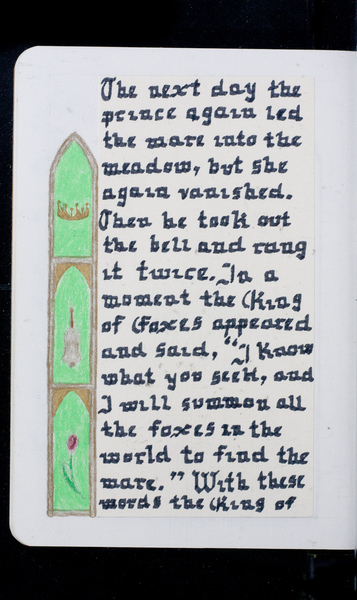 The next day the
prince again led
the mare into the
meadow, but she
again vanished.
Then he took out
the bell and rang
it twice. In a
moment the King
of Foxes appeared
and said, "I know
what you seek, and
I will summon all
the foxes in the
world to find the
mare." With these
words the King of